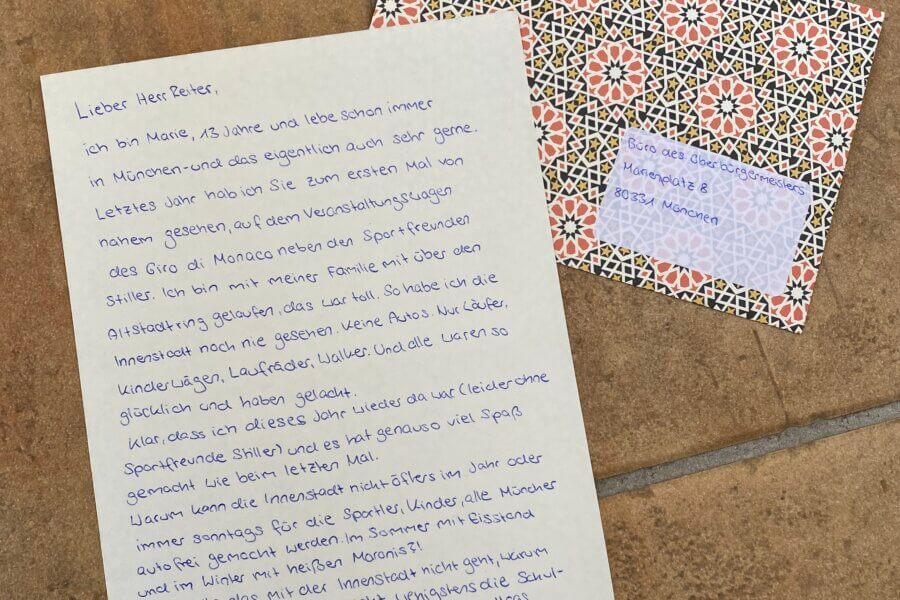 Lieber Herr Reiter,
ich bin Marie, 13 Jahre und lebe schon immer
in München - und das eigentlich auch sehr gerne.
Letztes Jahr hab ich Sie zum ersten Mal von
nahem gesehen, auf dem Veranstaltungswagen
des Giro di Monaco neben den Sportfreunden
Stiller. Ich bin mit meiner Familie mit über den
Altstadtring gelaufen, das war toll. So habe ich die
Innenstadt noch nie gesehen. Keine Autos. Nur Läufer,
Kinderwägen, Laufräder, Walker. Und alle waren so
glücklich und haben gelacht.
Klar, dass ich dieses Jahr wieder da war (leider ohne
Sportfreunde Stiller) und es hat genauso viel Spaß
gemacht wie beim letzten Mal.
Warum kann die Innenstadt nicht öfters im Jahr oder
immer sonntags für die Sportler, Kinder, alle Münchner
autofrei gemacht werden. Im Sommer mit Eisstand
und im Winter mit heißen Maronis?!
das mit der Innenstadt nicht geht, warum
wenigstens die Schul-
Büro des Oberbürgermeisters
Marienplatz 8
80331 München